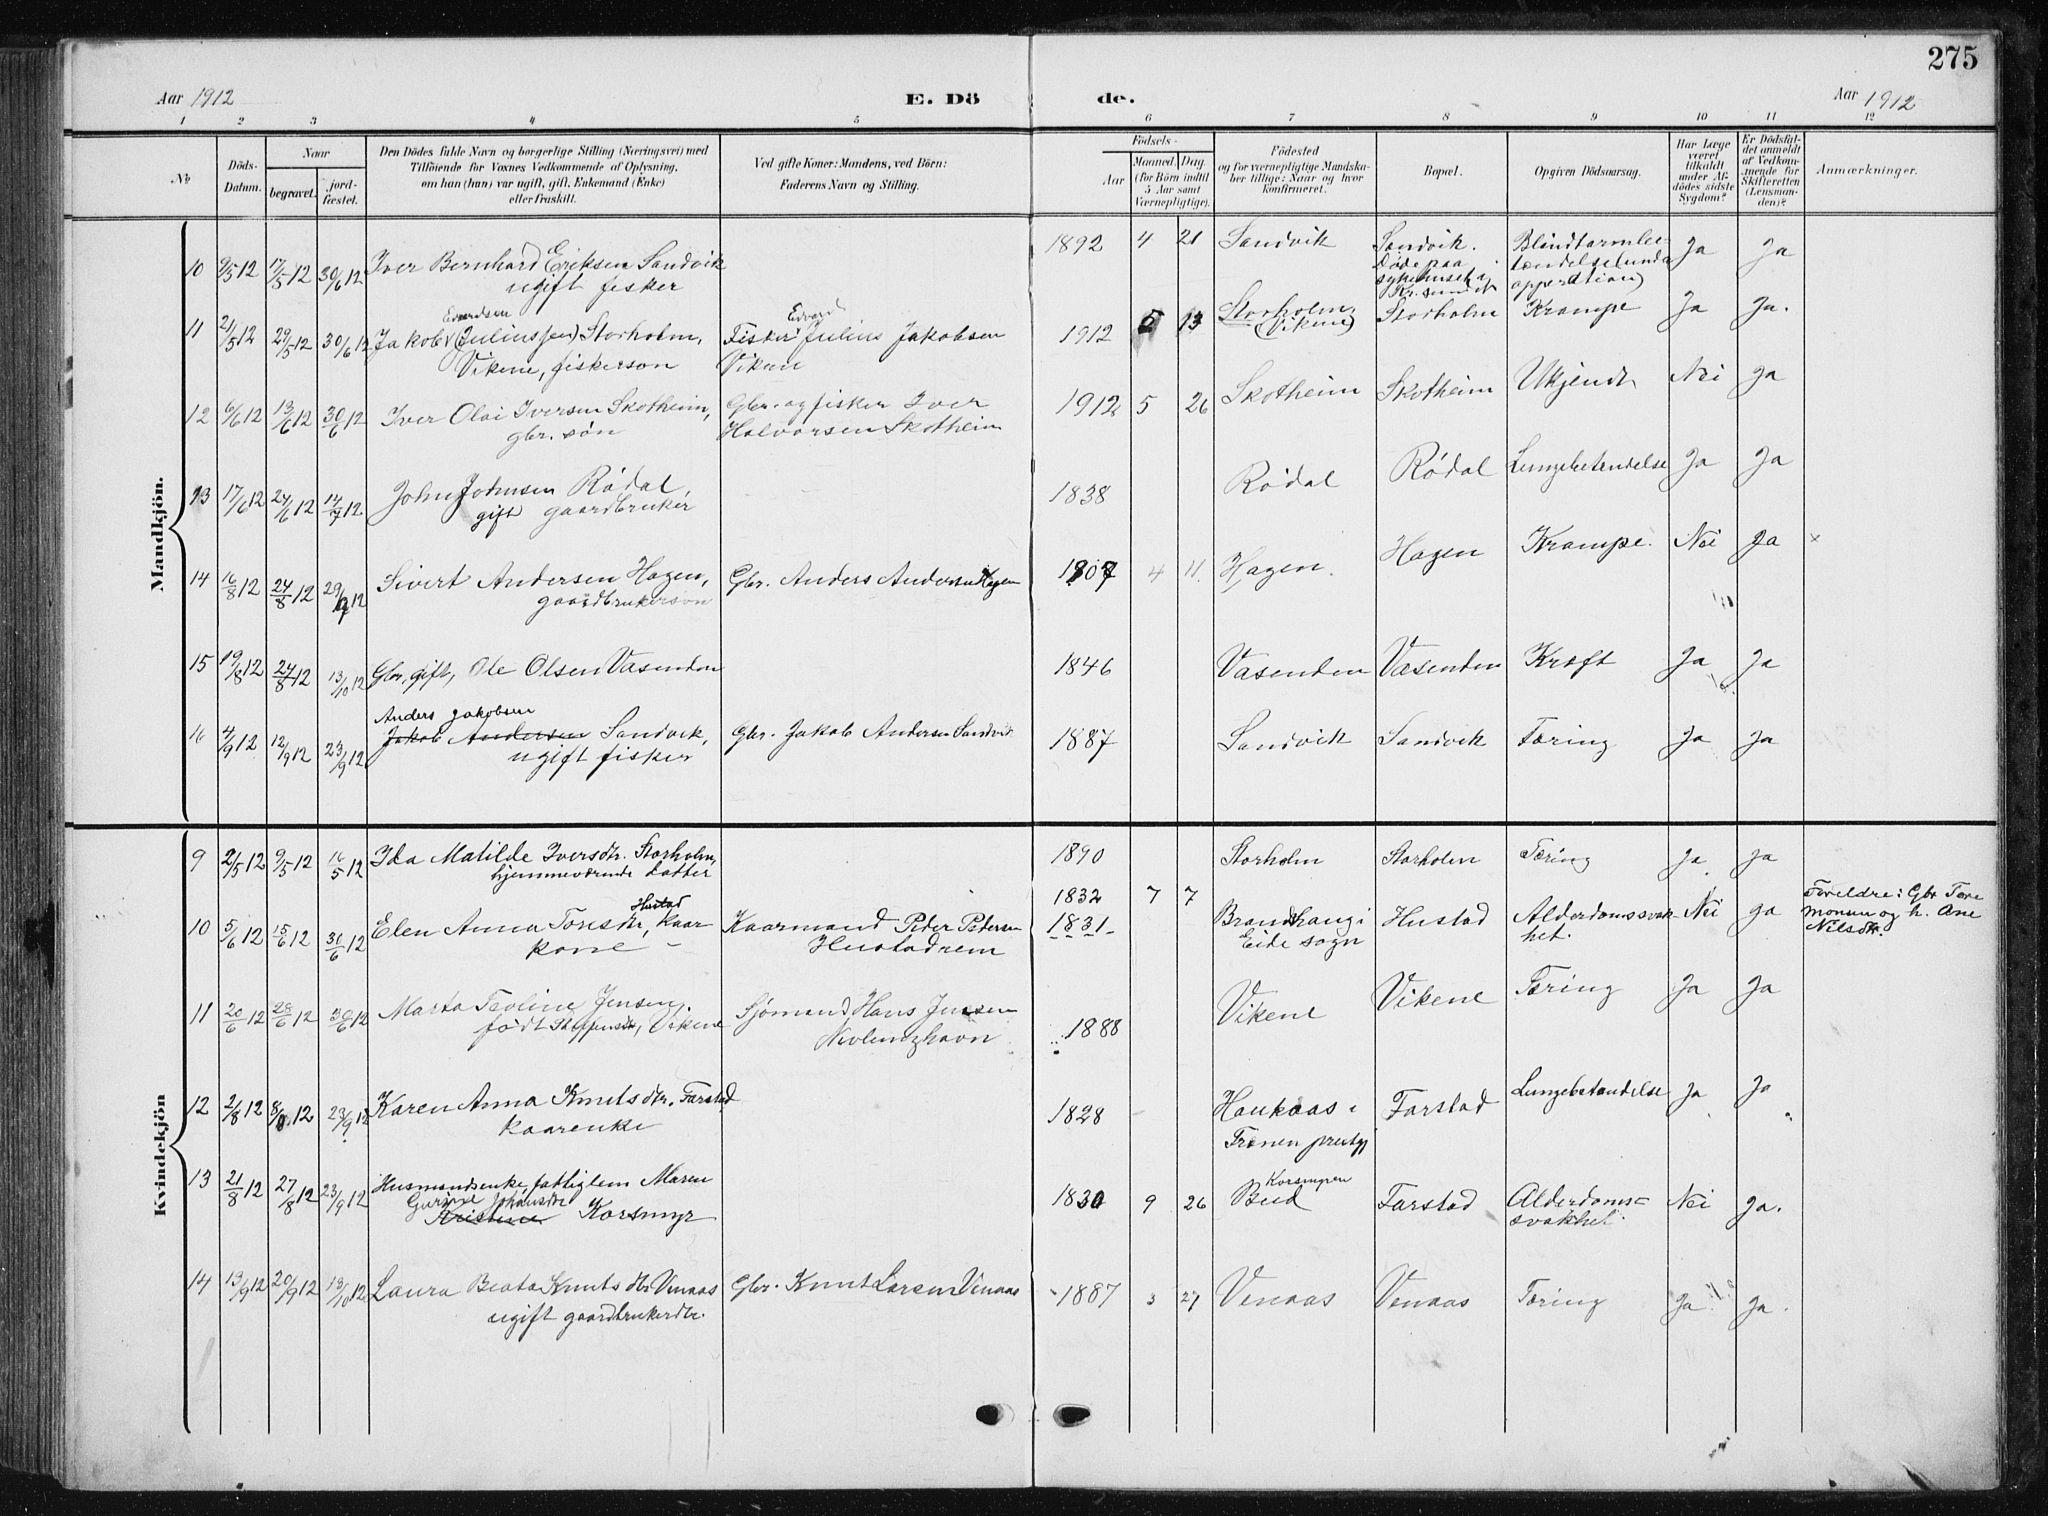 275
Aar 1912 E. Dö de. Aar 1912
1 2 3 4 5 6 7 8 9 10 11 12
No
Döds-Datum.
Naar
begravet. jord-fæstet.
Den Dödes fulde Navn og borgerlige Stilling (Næringsvei) med
Tilföiende for Voxnes Vedkommende af Oplysning,
om han (hun) var ugift, gift, Enkemand (Enke)
eller fraskilt.
Ved gifte Koner: Mandens, ved Börn:
Faderens Navn og Stilling.
Födsels-
Aar
Maaned. Dag.
(for Börn indtil
5 Aar samt
Værnepligtige).
Födested
og for værnepligtige Mandska-
ber tillige: Naar og hvor
konfirmeret.
Bopæl.
Opgiven Dödsaarsag.
Har Læge
været
tilkaldt
under Af-
dödes sidste
Sygdom?
Er Dödsfal-
det anmeldt
af Vedkom-
mende for
Skifteretten
(Lensman-
den)?
Anmærkninger.
Mandkjön.
10 9/5 12 17/5 12 30/6 12 Iver Bernhard Eriksen Sandvik 1892 4 21 Sandvik Sandvik. Blindtarmbe- Ja Ja
ugift fisker Døde paa tændelse (under
sykehuset i operation)
Kr.sund
Edvardsen Edvard
11 21/5 12 29/5 12 30/6 12 Jakob (Juliussen) Storholm, Fisker Julius Jakobsen 1912 5 13 Storholm Storholm Krampe Ja Ja.
Vikene, fiskerson Vikan (Vikene)
12 6/6 12 13/6 12 30/6 12 Iver Olai Iversen Skotheim, Gbr. og fisker Iver 1912 5 26 Skotheim Skotheim Ukjendt Nei Ja
gbr. søn Halvorsen Skotheim
13 17/6 12 24/6 12 14/7 12 John Johnsen Rødal, 1838 Rødal Rødal Lungebetændelse Ja Ja
gift gaardbruker
14 16/8 12 24/8 12 29/9 12 Sivert Andersen Hagen, Gbr. Anders Andersen Hagen 1907 4 11. Hagen. Hagen Krampe. Nei Ja ×
gaardbrukerson
15 19/8 12 24/8 12 13/10 12 Gbr, gift, Ole Olsen Vasenden 1846 Vasenden Vasenden Kræft Ja Ja
Anders Jakobsen
16 4/9 12 12/9 12 23/9 12 Jakob Andersen Sandvik, Gbr. Jakob Andersen Sandvik 1887 Sandvik Sandvik Tæring Ja Ja
ugift fisker
Kvindekjön
9 2/5 12 9/5 12 16/5 12 Ida Matilde Iversdtr. Storholm, 1890 Storholm Storholm Tæring Ja Ja
hjemmeværende datter
Hustad 1832 7 7 Foreldre: Gbr Tore
10 5/6 12 15/6 12 30/6 12 Elen Anna Toresdtr, kaar Kaarmand Peder Pedersen 1831 Brandhaug i Hustad Alderdomssvak Nei Ja Monsen og h. Ane
kone Hustadrem Eide sogn het. Nilsdtr.
11 20/6 12 28/6 12 30/6 12 Marta Teoline Jensen, Sjømand Hans Jensen 1888 Vikene Vikene Tæring Ja Ja
født Steffensdtr, Vikene Nevlunghavn
12 2/8 12 8/8 12 23/9 12 Karen Anna Knutsdtr. Farstad 1828 Haukaas i Farstad Lungebetændelse Ja Ja
kaarenke Frænen prestgj
13 21/8 12 27/8 12 23/9 12 Husmandsenke, fattiglem Maren 1830 9 26 Korsmyren Bud Farstad Alderdoms- Nei Ja.
Gurine Johansdtr Kristine Korsmyr svakhet.
14 13/9 12 20/9 12 13/10 12 Laura Beata Knutsdtr Venaas Gbr. Knut Larsen Venaas 1887 3 27 Venaas Venaas Tæring Ja Ja.
ugift gaardbrukerdtr.